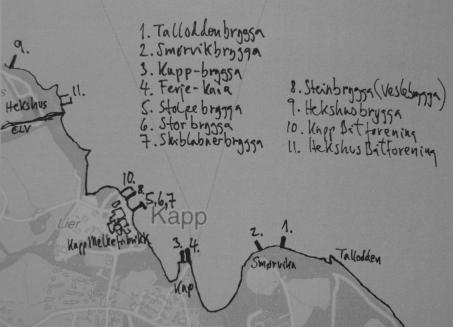 1. Talloddenbrygga
2. Smørvikbrygga
3. Kapp-brygga
4. Ferje-kaia
5. Stolpebrygga
6. Storbrygga
7. Skiblabnerbrygga
8. Steinbrygga (Veslebrygga)
9. Hekshusbrygga
10. Kapp Båtforening
11. Hekshus Båtforening
9.
11.
Hekshus
ELV
10.
8.
5,6,7
Kapp
Lier
Kapp Melkefabrikk
3.
4.
Kap
2.
1.
Smørvika
Tallodden